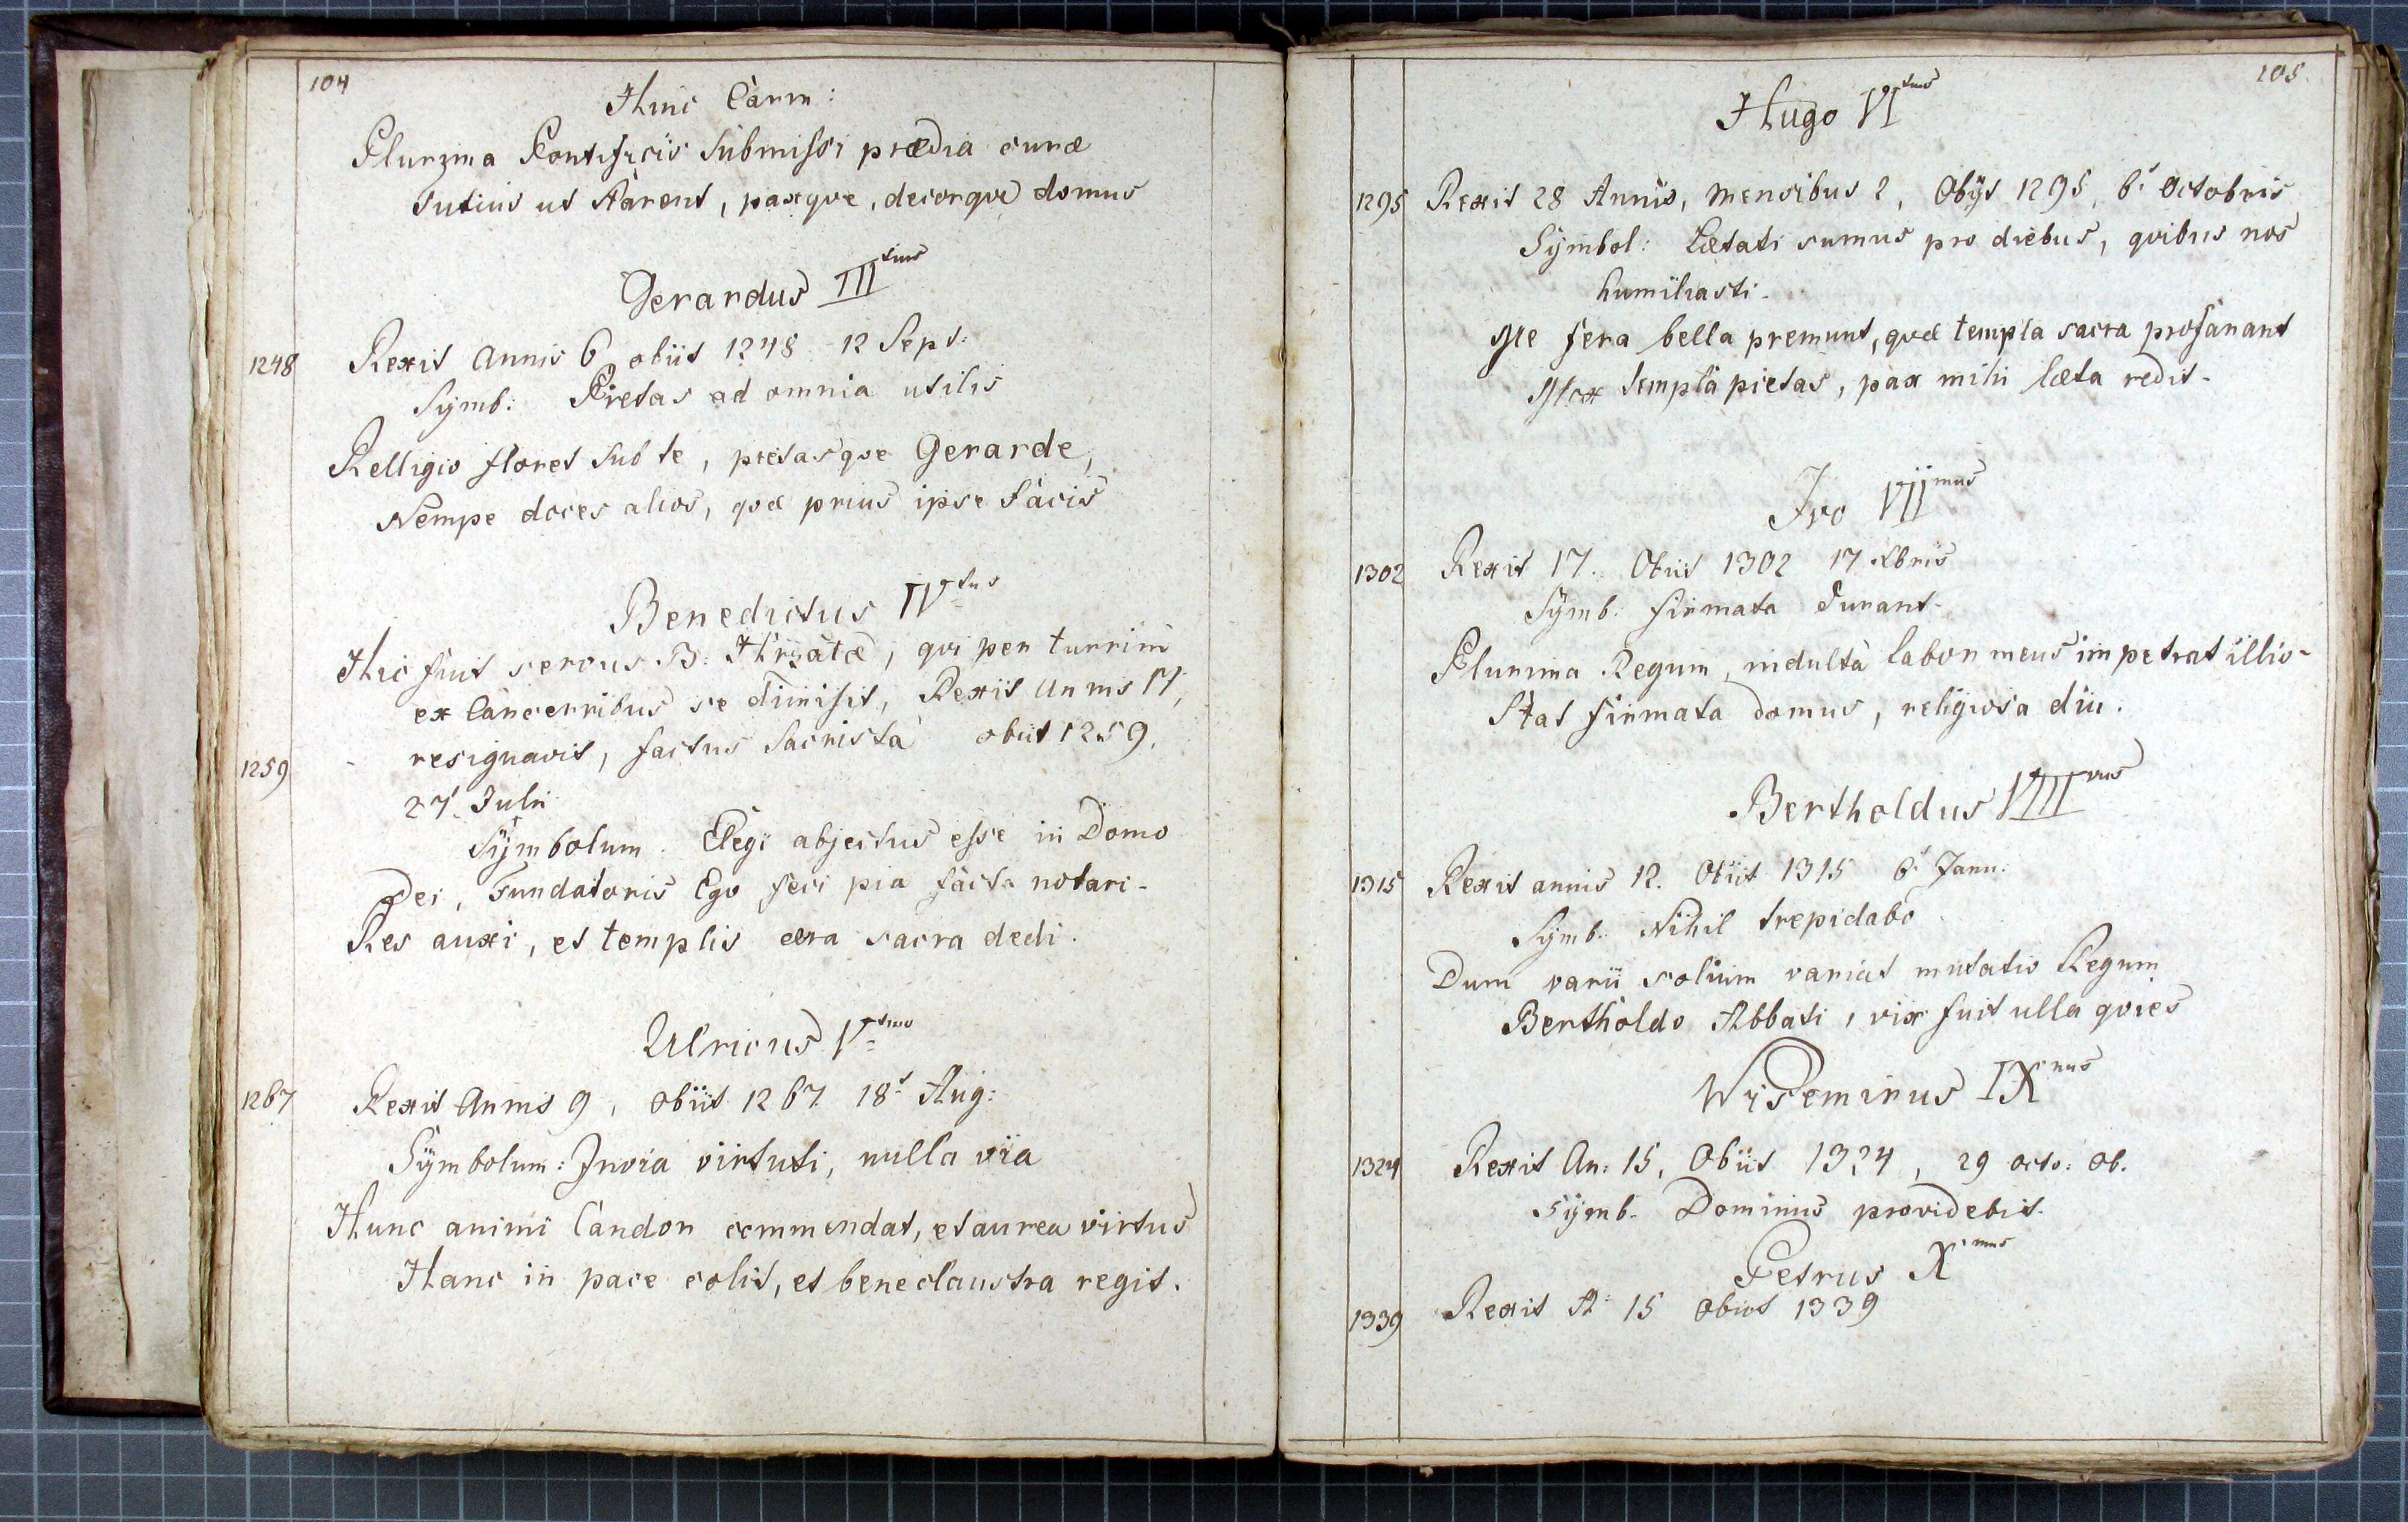 104
Hinc Carm:
Plurima Pontificis submissi prædia curæ
Tutius ut starent, paxque, decorque domus
Gerardus III tius
1248 Rexit Annis 6 obiit 1248 12 Sept:
Symb: Pietas ad omnia utilis
Relligio floret sub te, pietasque Gerarde,
Nempe doces alios, quæ prius ipse facis
Benedictus IV tus
Hic fuit servus B. Hrysatæ, qui per turrim
ex Carcerribus se dimisit, Rexit Annis 17,
1259 resignavit, factus Sacrista obiit 1259.
27. Julii
Symbolum. Elegi abjectus esse in Domo
Dei, Fundatoris Ego feci pia facta notari.
Res auxi, et templis æra sacra dedi.
Ulricus V tus
1267 Rexit Annis 9, obiit 1267 18t Aug:
Symbolum: Invia virtuti, nulla via
Hunc animi Candor commendat, et aurea virtus
Hanc in pace colit, et bene claustra regit.
105.
Hugo VI tus
1295 Rexit 28 Annis, mensibus 2, Obÿt 1295, 6t Octobris
Sÿmbol: Lætati sumus pro diebus, quibus nos
humiliasti.
Me fera bella premunt, quæ templa sacra profanant
Mox templa pietas, pax mihi læta redit.
Ivo VII mus
1302 Rexit 17. Obiit 1302 17 Xbris
Sÿmb: firmata durant.
Plurima Regum, indulta labor meus impetrat illis.
Stat firmata domus, religiosa diu.
Bertholdus VIII vus
1315 Rexit annis 12. Obiit 1315 6t Janu:
Sÿmb. Nihil trepidabo
Dum varii solium variat mutatio Regum
Bertholdo Abbati, vix fuit ulla quies
Wisemirus IX nus
1324 Rexit An: 15, Obiit 1324, 29 octo: ob.
Sÿmb. Dominus providebit.
Petrus X mus
1339 Rexit A: 15 obiit 1339